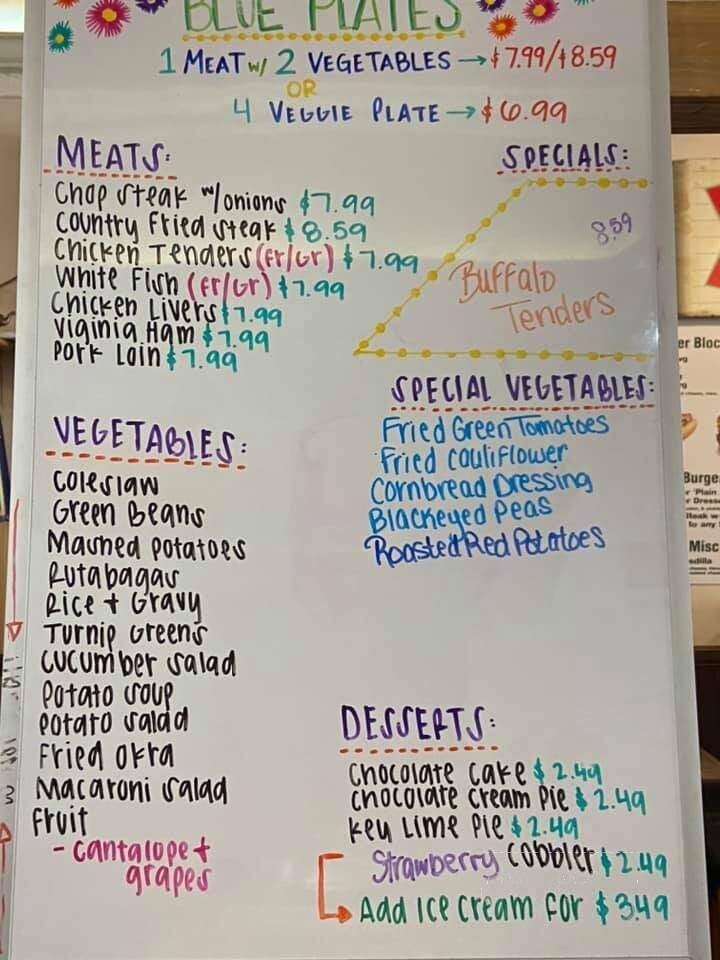 BLUE PLATES
1 MEAT w/ 2 VEGETABLES → $7.99/$8.59
OR
4 VEGGIE PLATE → $6.99
MEATS:
Chop steak w/onions $7.99
Country Fried Steak $8.59
Chicken Tenders (Fr/Gr) $7.99
White Fish (Fr/Gr) $7.99
Chicken Livers $7.99
Viginia Ham $7.99
Pork Loin $7.99
SPECIALS:
8.59
Buffalo
Tenders
SPECIAL VEGETABLES:
Fried Green Tomatoes
Fried Cauliflower
Cornbread Dressing
Blackeyed Peas
Roasted Red Potatoes
VEGETABLES:
Coleslaw
Green Beans
Mashed Potatoes
Rutabagas
Rice + Gravy
Turnip Greens
Cucumber Salad
Potato Soup
Potato Salad
Fried Okra
Macaroni Salad
Fruit
- Cantalope +
grapes
DESSERTS:
Chocolate Cake $2.49
Chocolate Cream Pie $2.49
Key Lime Pie $2.49
Strawberry Cobbler $2.49
Add Ice Cream for $3.49
er Bloc
Burge
Misc